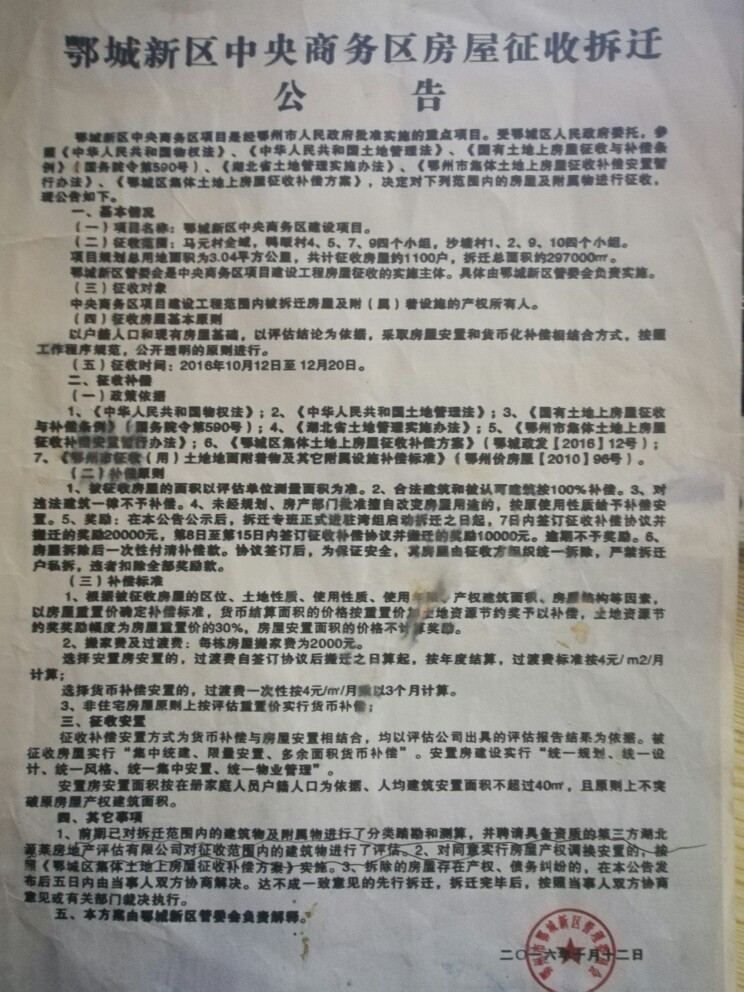 鄂城新区中央商务区房屋征收拆迁
公 告
鄂城新区中央商务区项目是经鄂州市人民政府批准实施的重点项目。受鄂城区人民政府委托，参
照《中华人民共和国物权法》、《中华人民共和国土地管理法》、《国有土地上房屋征收与补偿条
例》（国务院令第590号）、《湖北省土地管理实施办法》、《鄂州市集体土地上房屋征收补偿安置暂
行办法》、《鄂城区集体土地上房屋征收补偿方案》，决定对下列范围内的房屋及附属物进行征收，
现公告如下。
一、基本情况
（一）项目名称：鄂城新区中央商务区建设项目。
（二）征收范围：马元村全域，鸭畈村4、5、7、9四个小组，沙塘村1、2、9、10四个小组。
项目规划总用地面积为3.04平方公里，共计征收房屋约1100户，拆迁总面积约297000㎡。
鄂城新区管委会是中央商务区项目建设工程房屋征收的实施主体。具体由鄂城新区管委会负责实施。
（三）征收对象
中央商务区项目建设工程范围内被拆迁房屋及附（属）着设施的产权所有人。
（四）征收房屋基本原则
以户籍人口和现有房屋基础，以评估结论为依据，采取房屋安置和货币化补偿相结合方式，按照
工作程序规范，公开透明的原则进行。
（五）征收时间：2016年10月12日至12月20日。
二、征收补偿
（一）政策依据
1、《中华人民共和国物权法》；2、《中华人民共和国土地管理法》；3、《国有土地上房屋征收
与补偿条例》（国务院令第590号）；4、《湖北省土地管理实施办法》；5、《鄂州市集体土地上房屋
征收补偿安置暂行办法》；6、《鄂城区集体土地上房屋征收补偿方案》（鄂城政发【2016】12号）；
7、《鄂州市征收（用）土地地面附着物及其它附属设施补偿标准》（鄂州价房服【2010】96号）。
（二）补偿原则
1、被征收房屋的面积以评估单位测量面积为准。2、合法建筑和被认可建筑按100%补偿。3、对
违法建筑一律不予补偿。4、未经规划、房产部门批准擅自改变房屋用途的，按原使用性质给予补偿安
置。5、奖励：在本公告公示后，拆迁专班正式进驻湾组启动拆迁之日起，7日内签订征收补偿协议并
搬迁的奖励20000元，第8日至第15日内签订征收补偿协议并搬迁的奖励10000元。逾期不予奖励。6、
房屋拆除后一次性付清补偿款。协议签订后，为保证安全，其房屋由征收方组织统一拆除，严禁拆迁
户私拆，违者扣除全部奖励款。
（三）补偿标准
1、根据被征收房屋的区位、土地性质、使用性质、使用年限、产权建筑面积、房屋结构等因素，
以房屋重置价确定补偿标准，货币结算面积的价格按重置价加土地资源节约奖予以补偿，土地资源节
约奖奖励幅度为房屋重置价的30%，房屋安置面积的价格不计算奖励。
2、搬家费及过渡费：每栋房屋搬家费为2000元。
选择安置房安置的，过渡费自签订协议后搬迁之日算起，按年度结算，过渡费标准按4元/ m2/月
计算；
选择货币补偿安置的，过渡费一次性按4元/㎡/月乘以3个月计算。
3、非住宅房屋原则上按评估重置价实行货币补偿；
三、征收安置
征收补偿安置方式为货币补偿与房屋安置相结合，均以评估公司出具的评估报告结果为依据。被
征收房屋实行“集中统建、限量安置、多余面积货币补偿”。安置房建设实行“统一规划、统一设
计、统一风格、统一集中安置、统一物业管理”。
安置房安置面积按在册家庭人员户籍人口为依据、人均建筑安置面积不超过40㎡，且原则上不突
破原房屋产权建筑面积。
四、其它事项
1、前期已对拆迁范围内的建筑物及附属物进行了分类踏勘和测算，并聘请具备资质的第三方湖北
源莱房地产评估有限公司对征收范围内的建筑物进行了评估。2、对同意实行房屋产权调换安置的，按
照《鄂城区集体土地上房屋征收补偿方案》实施。3、拆除的房屋存在产权、债务纠纷的，在本公告发
布后五日内由当事人双方协商解决。达不成一致意见的先行拆迁，拆迁完毕后，按照当事人双方协商
意见或有关部门裁决执行。
五、本方案由鄂城新区管委会负责解释。
二〇一六年十月十二日
鄂州市鄂城新区管理委员会